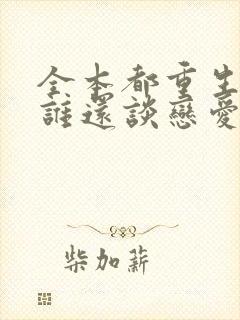 全本都重生
誰還談戀愛
柴加薪